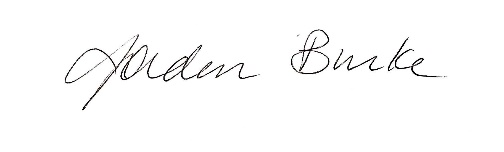 Jorden Burke